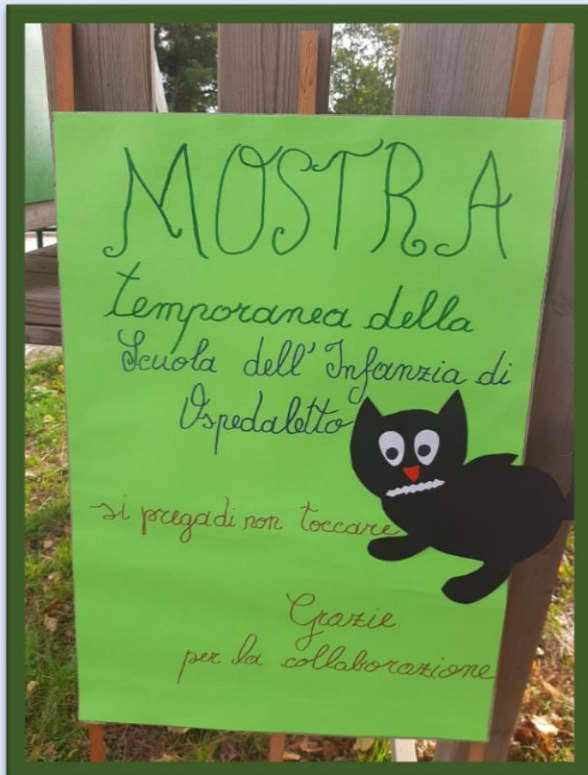 MOSTRA
temporanea della
Scuola dell'Infanzia di
Ospedaletto
si prega di non toccare
Grazie
per la collaborazione